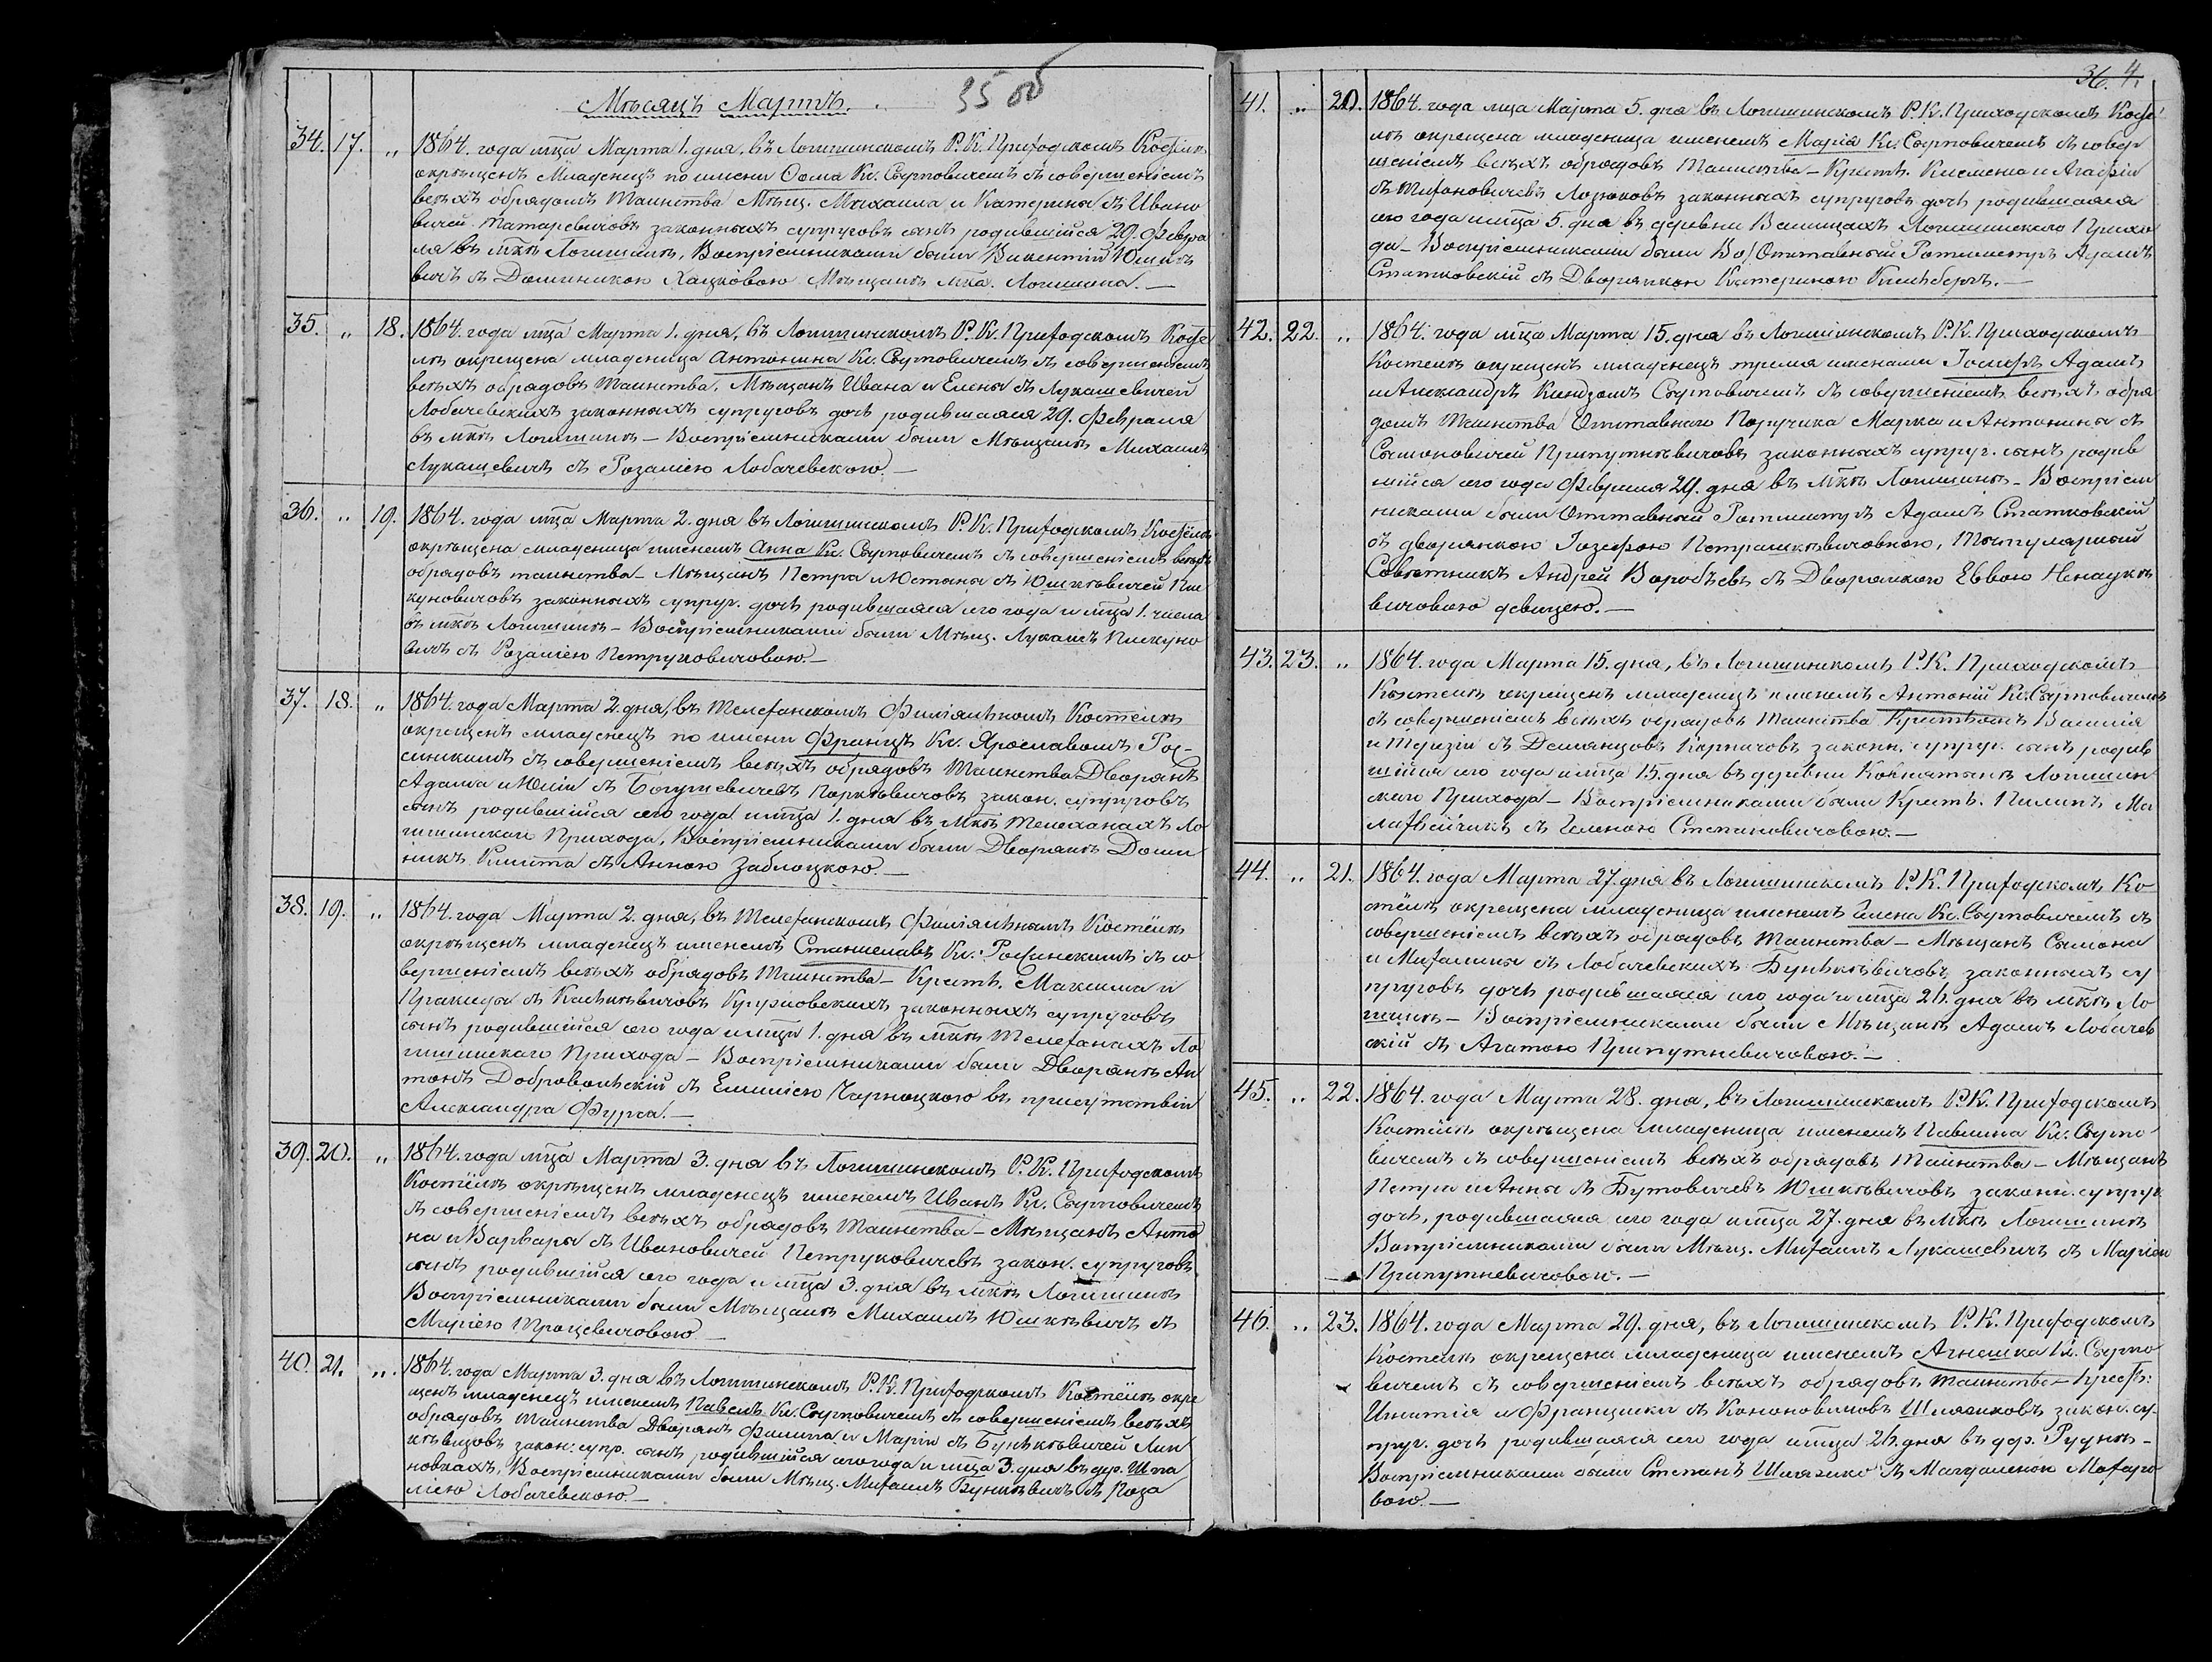 35 об
Мѣсяцъ Мартъ.
34. 17. „ 1864. года мца Марта 1. дня, въ Логишинскомъ Р. К. Приходскомъ Костелѣ
окрещенъ Младенецъ по имени Ѳома Кс. Сѣртовичемъ съ совершеніемъ
всѣхъ обрядомъ Таинства Мѣщ. Михаила и Катерины съ Ивано
вичей Татаревичовъ законныхъ супруговъ сынъ родившійся 29. Февра
ля въ мткѣ Логишинѣ, Воспріемниками были Викентій Юшкѣ
вичъ съ Доминикою Хацковою Мѣщане мка. Логишина. —
35. „ 18. 1864. года мца Марта 1. дня, въ Логишинскомъ Р. К. Приходскомъ Косте
лѣ окрещена младеница Антонина Кс. Сѣртовичемъ съ совершеніемъ
всѣхъ обрядовъ Таинства, Мѣщанъ Ивана и Елены съ Лукашевичей
Лобачевскихъ законныхъ супруговъ дочь родившаяся 29. Февраля
въ мткѣ Логишинѣ — Воспріемниками были Мѣщане Михаилъ
Лукашевичъ съ Розаліею Лобачевскою. —
36. „ 19. 1864. года мца Марта 2. дня въ Логишинскомъ Р. К. Приходскомъ Костёлѣ
окрѣщена младеница именемъ Анна Кс. Сѣртовичемъ съ совершеніемъ всѣхъ
обрядовъ таинства — Мѣщанъ Петра и Юстыны съ Юшкѣвичей Пис
куновичовъ законныхъ супруг. дочь родившаяся сего года и мца 1. числа
въ мткѣ Логишинѣ — Воспріемниками были Мѣщ. Лукашъ Пискуно
вичъ съ Розаліею Петруковичовою. —
37. 18. „ 1864. года Марта 2. дня, въ Телеханскомъ Филіяльномъ Костёлѣ
окрещенъ младенецъ по имени Францъ Кс. Ярославомъ Рос-
синскимъ съ совершеніемъ всѣхъ обрядовъ Таинства Дворянъ
Адама и Юліи съ Богушевичевъ закон. супруговъ
сынъ родившійся сего года и мца 1. дня въ Мткѣ Телеханахъ Ло
гишинскаго Прихода, Воспріемниками были Дворяне Доми
никъ съ Анною Заблоцкою. —
38. 19. „ 1864. года Марта 2. дня, въ Телеханскомъ Филіяльномъ Костёлѣ
окрѣщенъ младенецъ именемъ Станиславъ Кс. Россинскимъ съ со
вершеніемъ всѣхъ обрядовъ Таинства — Крестъ. Максима и
Пракседы съ законныхъ супруговъ
сынъ родившійся сего года и мца 1. дня въ мткѣ Телеханахъ Ло
гишинскаго Прихода — Воспріемниками были Дворяне Ан
тонъ Добровольскій съ Емиліею Чарноцкою въ присутствіи
Александра Фурса. —
39. 20. „ 1864. года мца Марта 3. дня въ Логишинскомъ Р. К. Приходскомъ
Костёлѣ окрѣщенъ младенецъ именемъ Иванъ Кс. Сѣртовичемъ
съ совершеніемъ всѣхъ обрядовъ Таинства — Мѣщанъ Анто
на и Варвары съ Ивановичей Петруковичевъ закон. супруговъ
сынъ родившійся сего года и мца 3. дня въ мткѣ Логишинѣ
Воспріемниками были Мѣщане Михаилъ Юшкѣвичъ съ
Маріею Процевичовою —
40. 21. „ 1864. года Марта 3. дня въ Логишинскомъ Р. К. Приходскомъ Костёлѣ окре
щенъ младенецъ именемъ Павелъ Кс. Сѣртовичемъ съ совершеніемъ всѣхъ
обрядовъ Таинства Дворянъ Филипа и Маріи съ Бунькѣвичей Лин
кѣвицовъ закон. супр. сынъ родившійся сего года и мца 3. дня въ дер. Шпа
новкахъ, Воспріемниками были Мѣщ. Михаилъ Бунькѣвичъ съ Роза
ліею Лобачевскою. —
36. 4.
41. „ 20. 1864. года мца Марта 5. дня въ Логишинскомъ Р. К. Приходскомъ Косте
лѣ окрещена младеница именемъ Марія Кс. Сѣртовичемъ съ совер
шеніемъ всѣхъ обрядовъ Таинства — Крест. Клеменса и Агафіи
съ Тихановичевъ Лозюковъ законныхъ супруговъ дочь родившаяся
сего года и мца 5. дня въ деревни Валищахъ Логишинскаго Прихо
да — Воспріемниками были Отставный Ротмистръ Адамъ
Статковскій съ Дворянкою Катериною —
42. 22. „ 1864. года мца Марта 15. дня въ Логишинскомъ Р. К. Приходскомъ
Костелѣ окрещенъ младенецъ тремя именами Іосифъ Адамъ
и Александръ Ксендзомъ Сѣртовичемъ съ совершеніемъ всѣхъ обря
домъ Таинства Отставнаго Поручика Марка и Антонины съ
Сымоновичей Припутнѣвичовъ законныхъ супруг. сынъ родив
шійся сего года Февраля 29. дня въ Мткѣ Логишинѣ — Воспріем
никами были Отставный Ротмистръ Адамъ Статковскій
съ дворянкою Іозефою Петрашкѣвичовною, Титулярный
Совѣтникъ Андрей Воробьевъ съ Дворянкою Еввою Ненадкѣ
вичовою девицею. —
43. 23. „ 1864. года Марта 15. дня, въ Логишинскомъ Р. К. Приходскомъ
Костелѣ окрещенъ младенецъ именемъ Антоній Кс. Сѣртовичемъ
съ совершеніемъ всѣхъ обрядовъ Таинства Крестьянъ Василія
и Терезіи съ Демянцовъ Карпичовъ законн. супруг. сынъ родив
шійся сего года и мца 15. дня въ деревни Логишин
скаго Прихода — Воспріемниками были Крестъ. Пилипъ
съ Геленою Степановичовою. —
44. „ 21. 1864. года Марта 27. дня въ Логишинскомъ Р. К. Приходскомъ Ко
стёлѣ окрещена младеница именемъ Гелена Кс. Сѣртовичемъ съ
совершеніемъ всѣхъ обрядовъ Таинства — Мѣщанъ Сымона
и Михалины съ Лобачевскихъ Бунькѣвичовъ законныхъ су
пруговъ дочь родившаяся сего года и мца 26. дня въ мткѣ Ло
гишинѣ — Воспріемниками были Мѣщане Адамъ Лобачев
скій съ Агатою Припутневичовою. —
45. „ 22. 1864. года Марта 28. дня, въ Логишинскомъ Р. К. Приходскомъ
Костёлѣ окрѣщена младеница именемъ Павлина Кс. Сѣрто
вичемъ съ совершеніемъ всѣхъ обрядовъ Таинства — Мѣщанъ
Петра и Анны съ Бутовичевъ Юшкѣвичовъ законн. супруг.
дочь, родившаяся сего года и мца 27. дня въ мткѣ Логишинѣ
Воспріемниками были Мѣщ. Михаилъ Лукашевичъ съ Маріею
Припутневичовою. —
46. „ 23. 1864. года Марта 29. дня, въ Логишинскомъ Р. К. Приходскомъ
Костелѣ окрещена младеница именемъ Агнешка Кс. Сѣрто
вичемъ съ совершеніемъ всѣхъ обрядовъ Таинства — Крест:
Игнатія и Францишки съ Кононовичовъ Шлягиковъ закон. су-
пруг. дочь родившаяся сего года и мца 26. дня въ дер. Руднѣ —
Воспріемниками были Степанъ съ Магдаленою Мохаро
вою. —